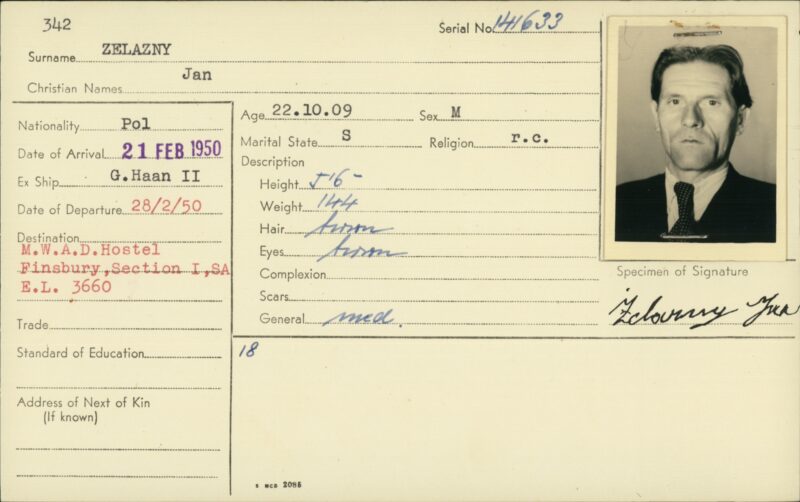 342
Serial No. 141633
Surname ZELAZNY
Christian Names Jan
Nationality Pol
Date of Arrival 21 FEB 1950
Ex Ship G.Haan II
Date of Departure 28/2/50
Destination
M.W.A.D.Hostel
Finsbury,Section I,SA
E.L. 3660
Trade
Standard of Education
Address of Next of Kin
(If known)
Age 22.10.09 Sex M
Marital State S Religion r.c.
Description
Height 5'6-
Weight 144
Hair brown
Eyes brown
Complexion
Scars
General med.
18
Specimen of Signature
Zelazny Jan
S MCD 2085